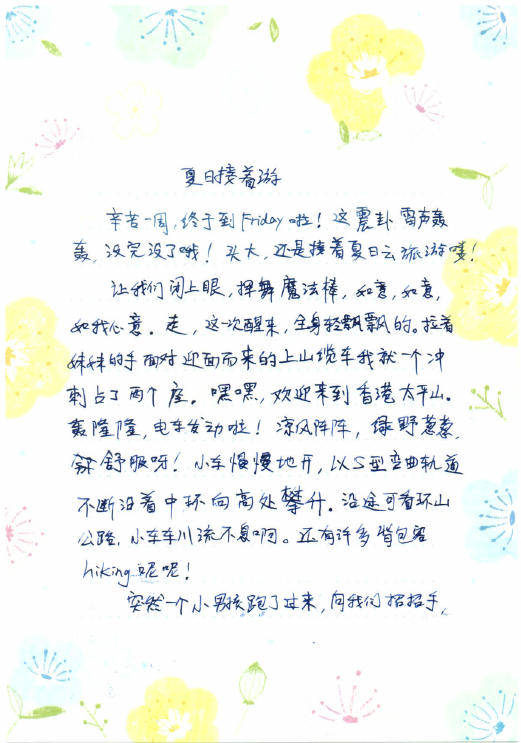 夏日接着游
辛苦一周,终于到Friday啦!这震卦雷声轰
轰,没完没了哦!头大,还是接着夏日云旅游喽!
让我们闭上眼,挥舞魔法棒,如意,如意,
如我心意.走,这次醒来,全身轻飘飘的.拉着
妹妹的手面对迎面而来的上山缆车我就一个冲
刺占了两个座。嘿嘿,欢迎来到香港太平山.
轰隆隆,电车发动啦!凉风阵阵,绿野葱葱,
舒服呀!小车慢慢地开,以S型弯曲轨道
不断沿着中环向高处攀升.沿途可看环山
公路,小车车川流不息啊。还有许多背包客
hiking呢!
突然一个小男孩跑了过来,向我们招招手,